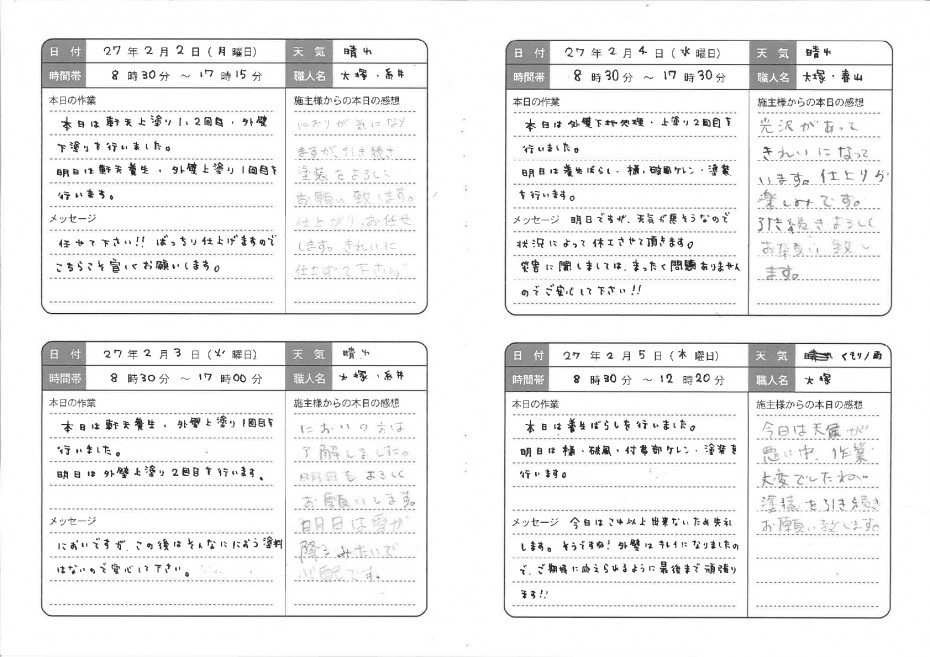 日 付 27年2月2日(月曜日) 天 気 晴れ
時間帯 8時30分 ～ 17時15分 職人名 大塚・糸井
本日の作業
本日は軒天上塗り1、2回目・外壁
下塗りを行いました。
明日は軒天養生・外壁上塗り1回目を
行います。
メッセージ
任せて下さい!! ばっちり仕上げますので
こちらこそ宜しくお願いします。
施主様からの本日の感想
においが気になり
ますが、引き続き
塗装をよろしく
お願い致します。
仕上がりお任せ
します。きれいに
仕上げて下さい。
日 付 27年2月3日(火曜日) 天 気 晴れ
時間帯 8時30分 ～ 17時00分 職人名 大塚・糸井
本日の作業
本日は軒天養生・外壁上塗り1回目を
行いました。
明日は外壁上塗り2回目を行います。
メッセージ
においですが、この後はそんなににおう塗料
はないので安心して下さい。
施主様からの本日の感想
においの方は
了解しました。
明日もよろしく
お願いします。
明日は雪が
降るみたいで
心配です。
日 付 27年2月4日(水曜日) 天 気 晴れ
時間帯 8時30分 ～ 17時30分 職人名 大塚・春山
本日の作業
本日は外壁下地処理・上塗り2回目を
行いました。
明日は養生ばらし・樋・破風ケレン・塗装
を行います。
メッセージ 明日ですが、天気が悪そうなので
状況によって休工させて頂きます。
災害に関しましては、まったく問題ありません
のでご安心して下さい!!
施主様からの本日の感想
光沢があって
きれいになって
います。仕上りが
楽しみです。
引き続きよろしく
お願い致し
ます。
日 付 27年2月5日(木曜日) 天 気 くもり/雨
時間帯 8時30分 ～ 12時20分 職人名 大塚
本日の作業
本日は養生ばらしを行いました。
明日は樋・破風・付帯部ケレン・塗装を
行います。
メッセージ 今日はこれ以上出来ないため失礼
します。そうですね! 外壁はキレイになりましたの
で、ご期待に応えられるように最後まで頑張り
ます!!
施主様からの本日の感想
今日は天候が
悪い中、作業
大変でしたね。
塗装を引き続き
お願い致します。